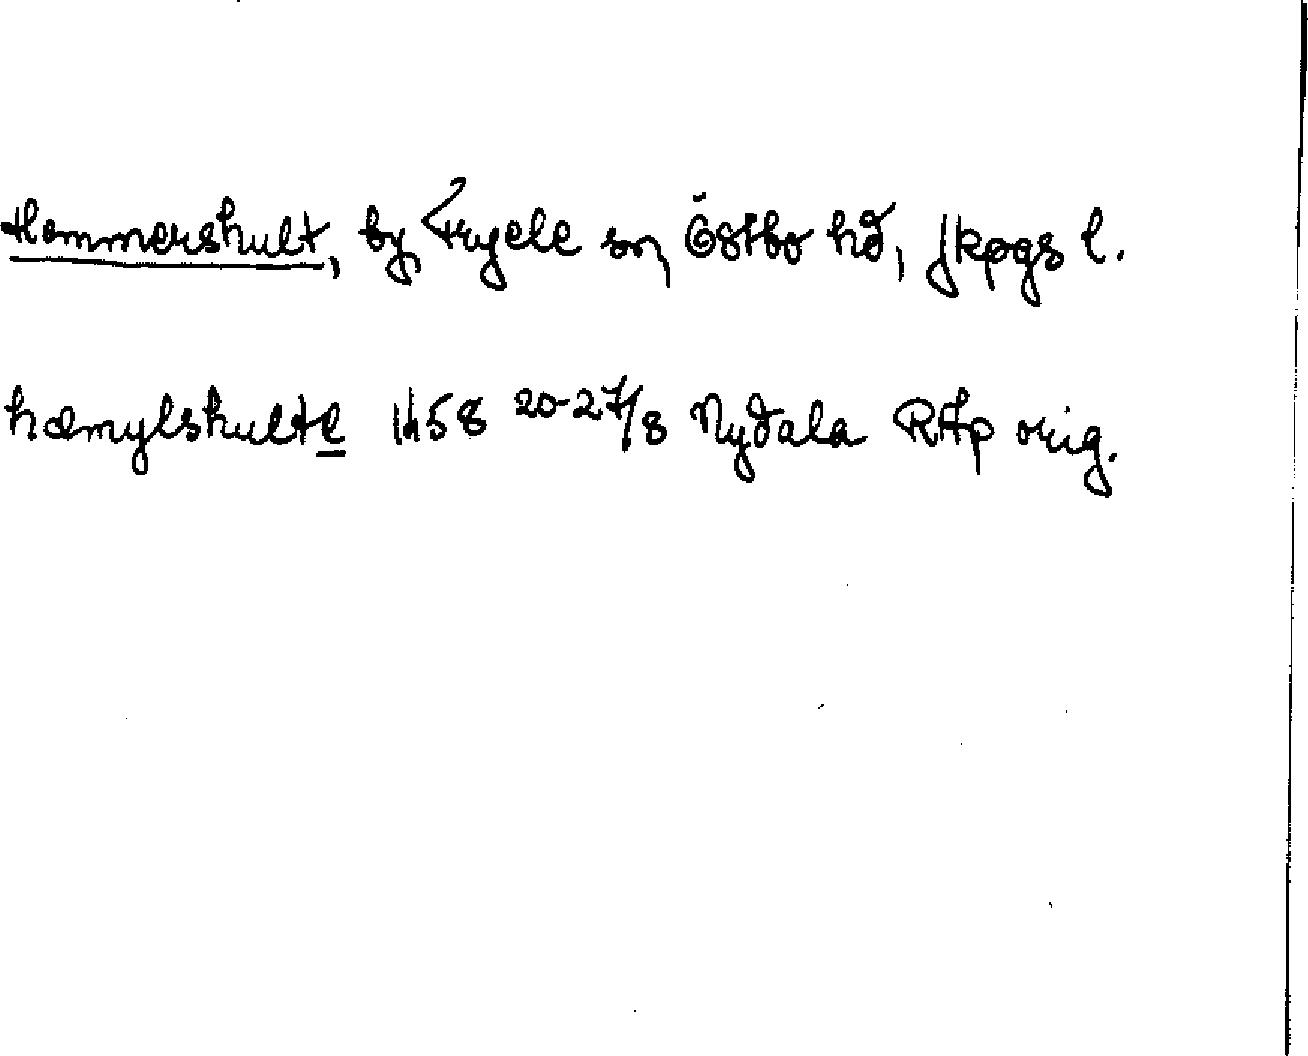 Hommershult, by, Fryele sn, Östbo hd, Jkpgs l.
hæmylshulte 1458 20-27/8 Nydala RAp orig.